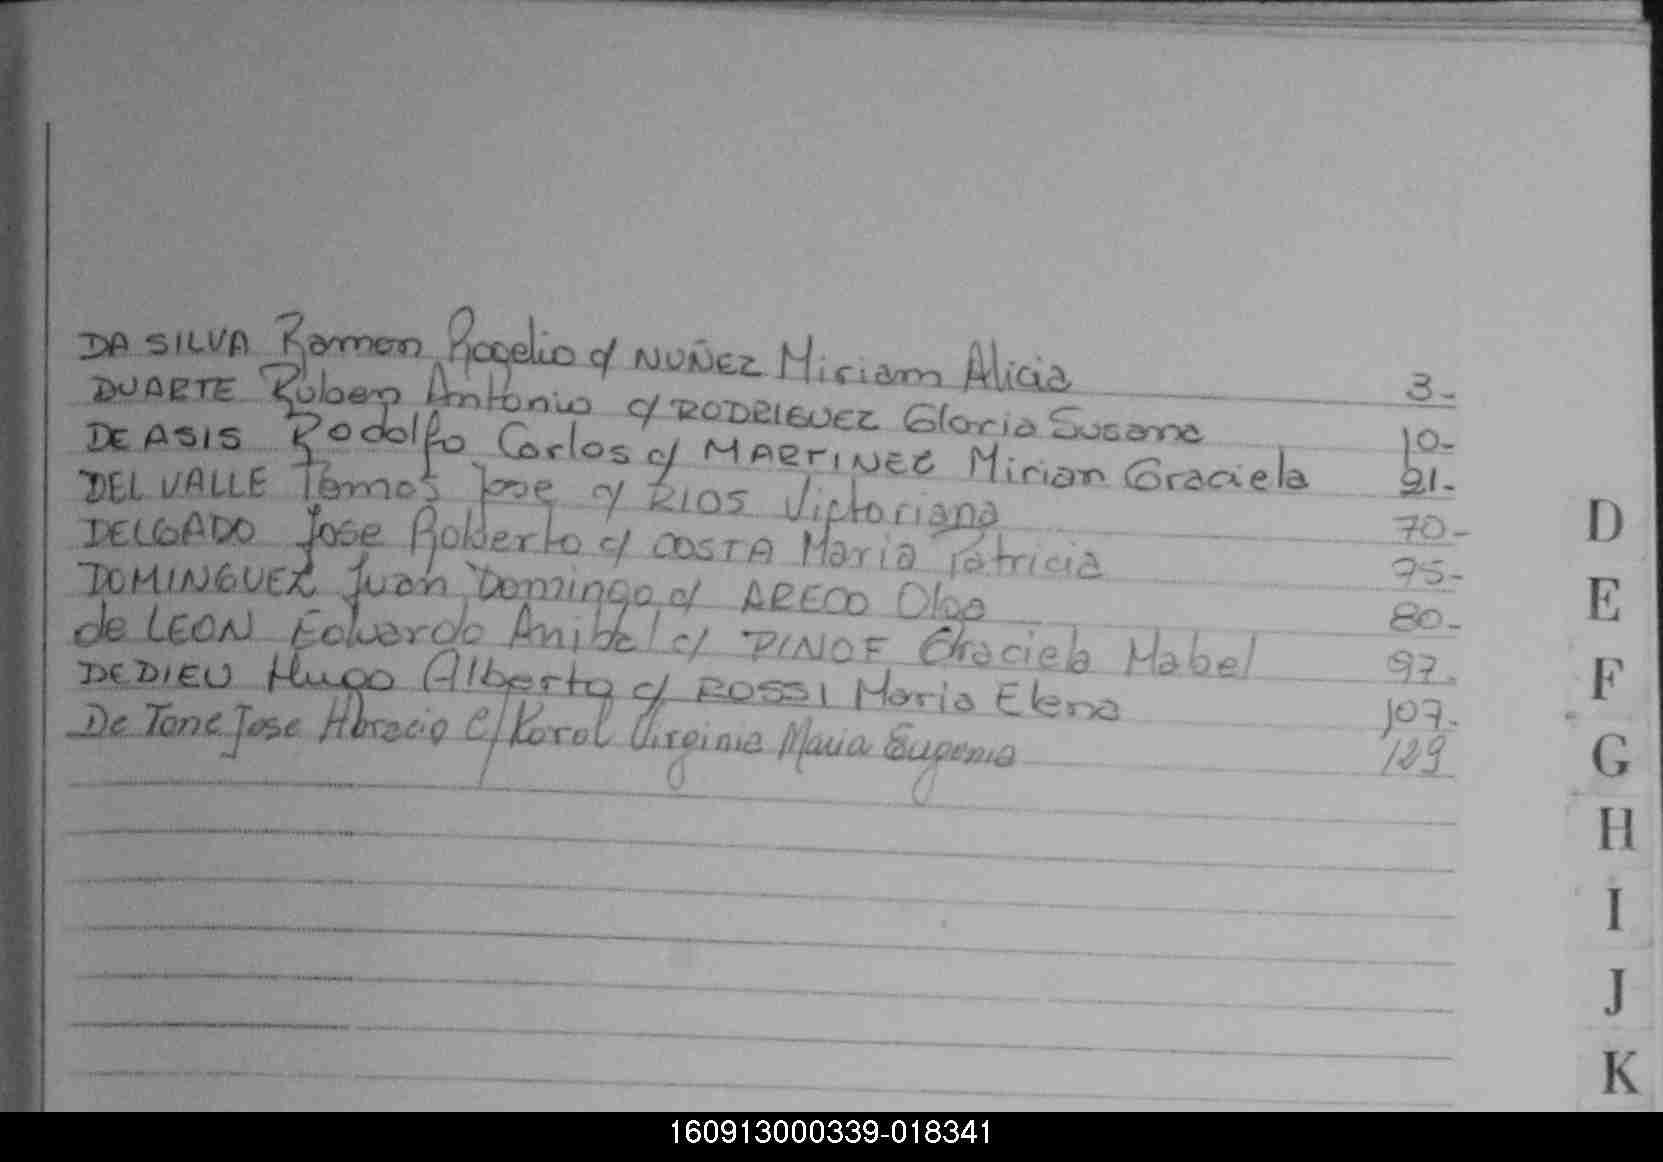 DA SILVA Ramon Rogelio c/ NUÑEZ Miriam Alicia 3-
DUARTE Ruben Antonio c/ RODRIGUEZ Gloria Susana 10-
DE ASIS Rodolfo Carlos c/ MARTINEZ Mirian Graciela 21-
DEL VALLE Tomas Jose c/ RIOS Victoriana 70-
DELGADO Jose Roberto c/ COSTA Maria Patricia 75-
DOMINGUEZ Juan Domingo c/ ARECO Olga 80-
de LEON Eduardo Anibal c/ Graciela Mabel 97-
DEDIEU Hugo Alberto c/ ROSSI Maria Elena 107-
De Tone Jose Horacio c/ Korol Virginia Maria Eugenia 129
D
E
F
G
H
I
J
K
160913000339-018341